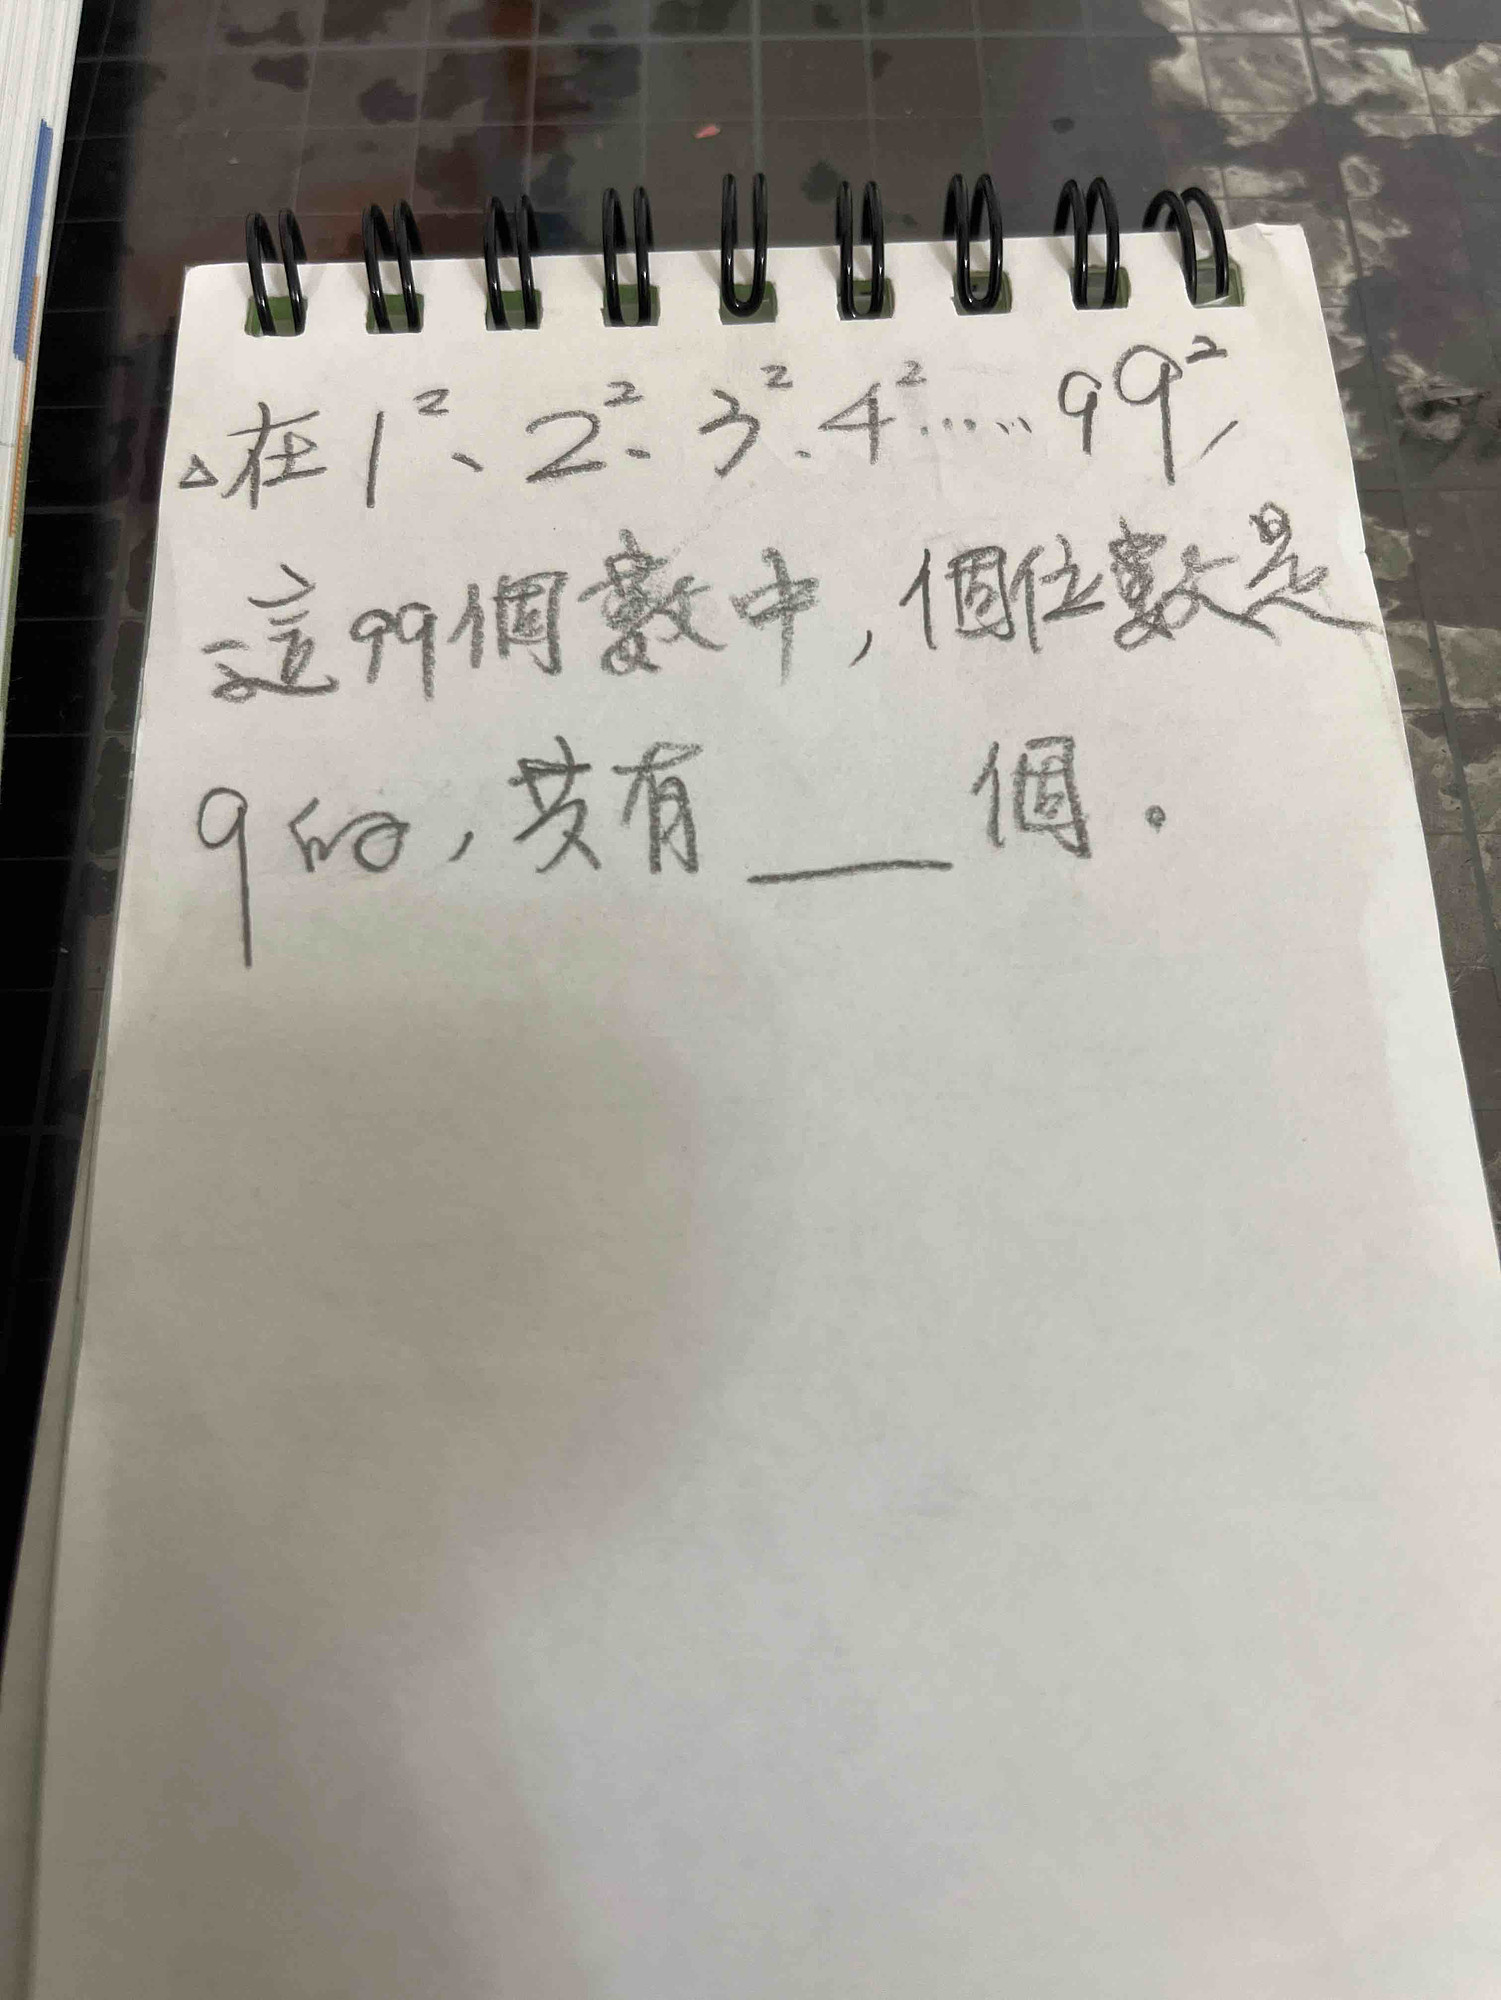 △在1²、2²、3²、4²......99²,
這99個數中,個位數是
9的,共有___個。